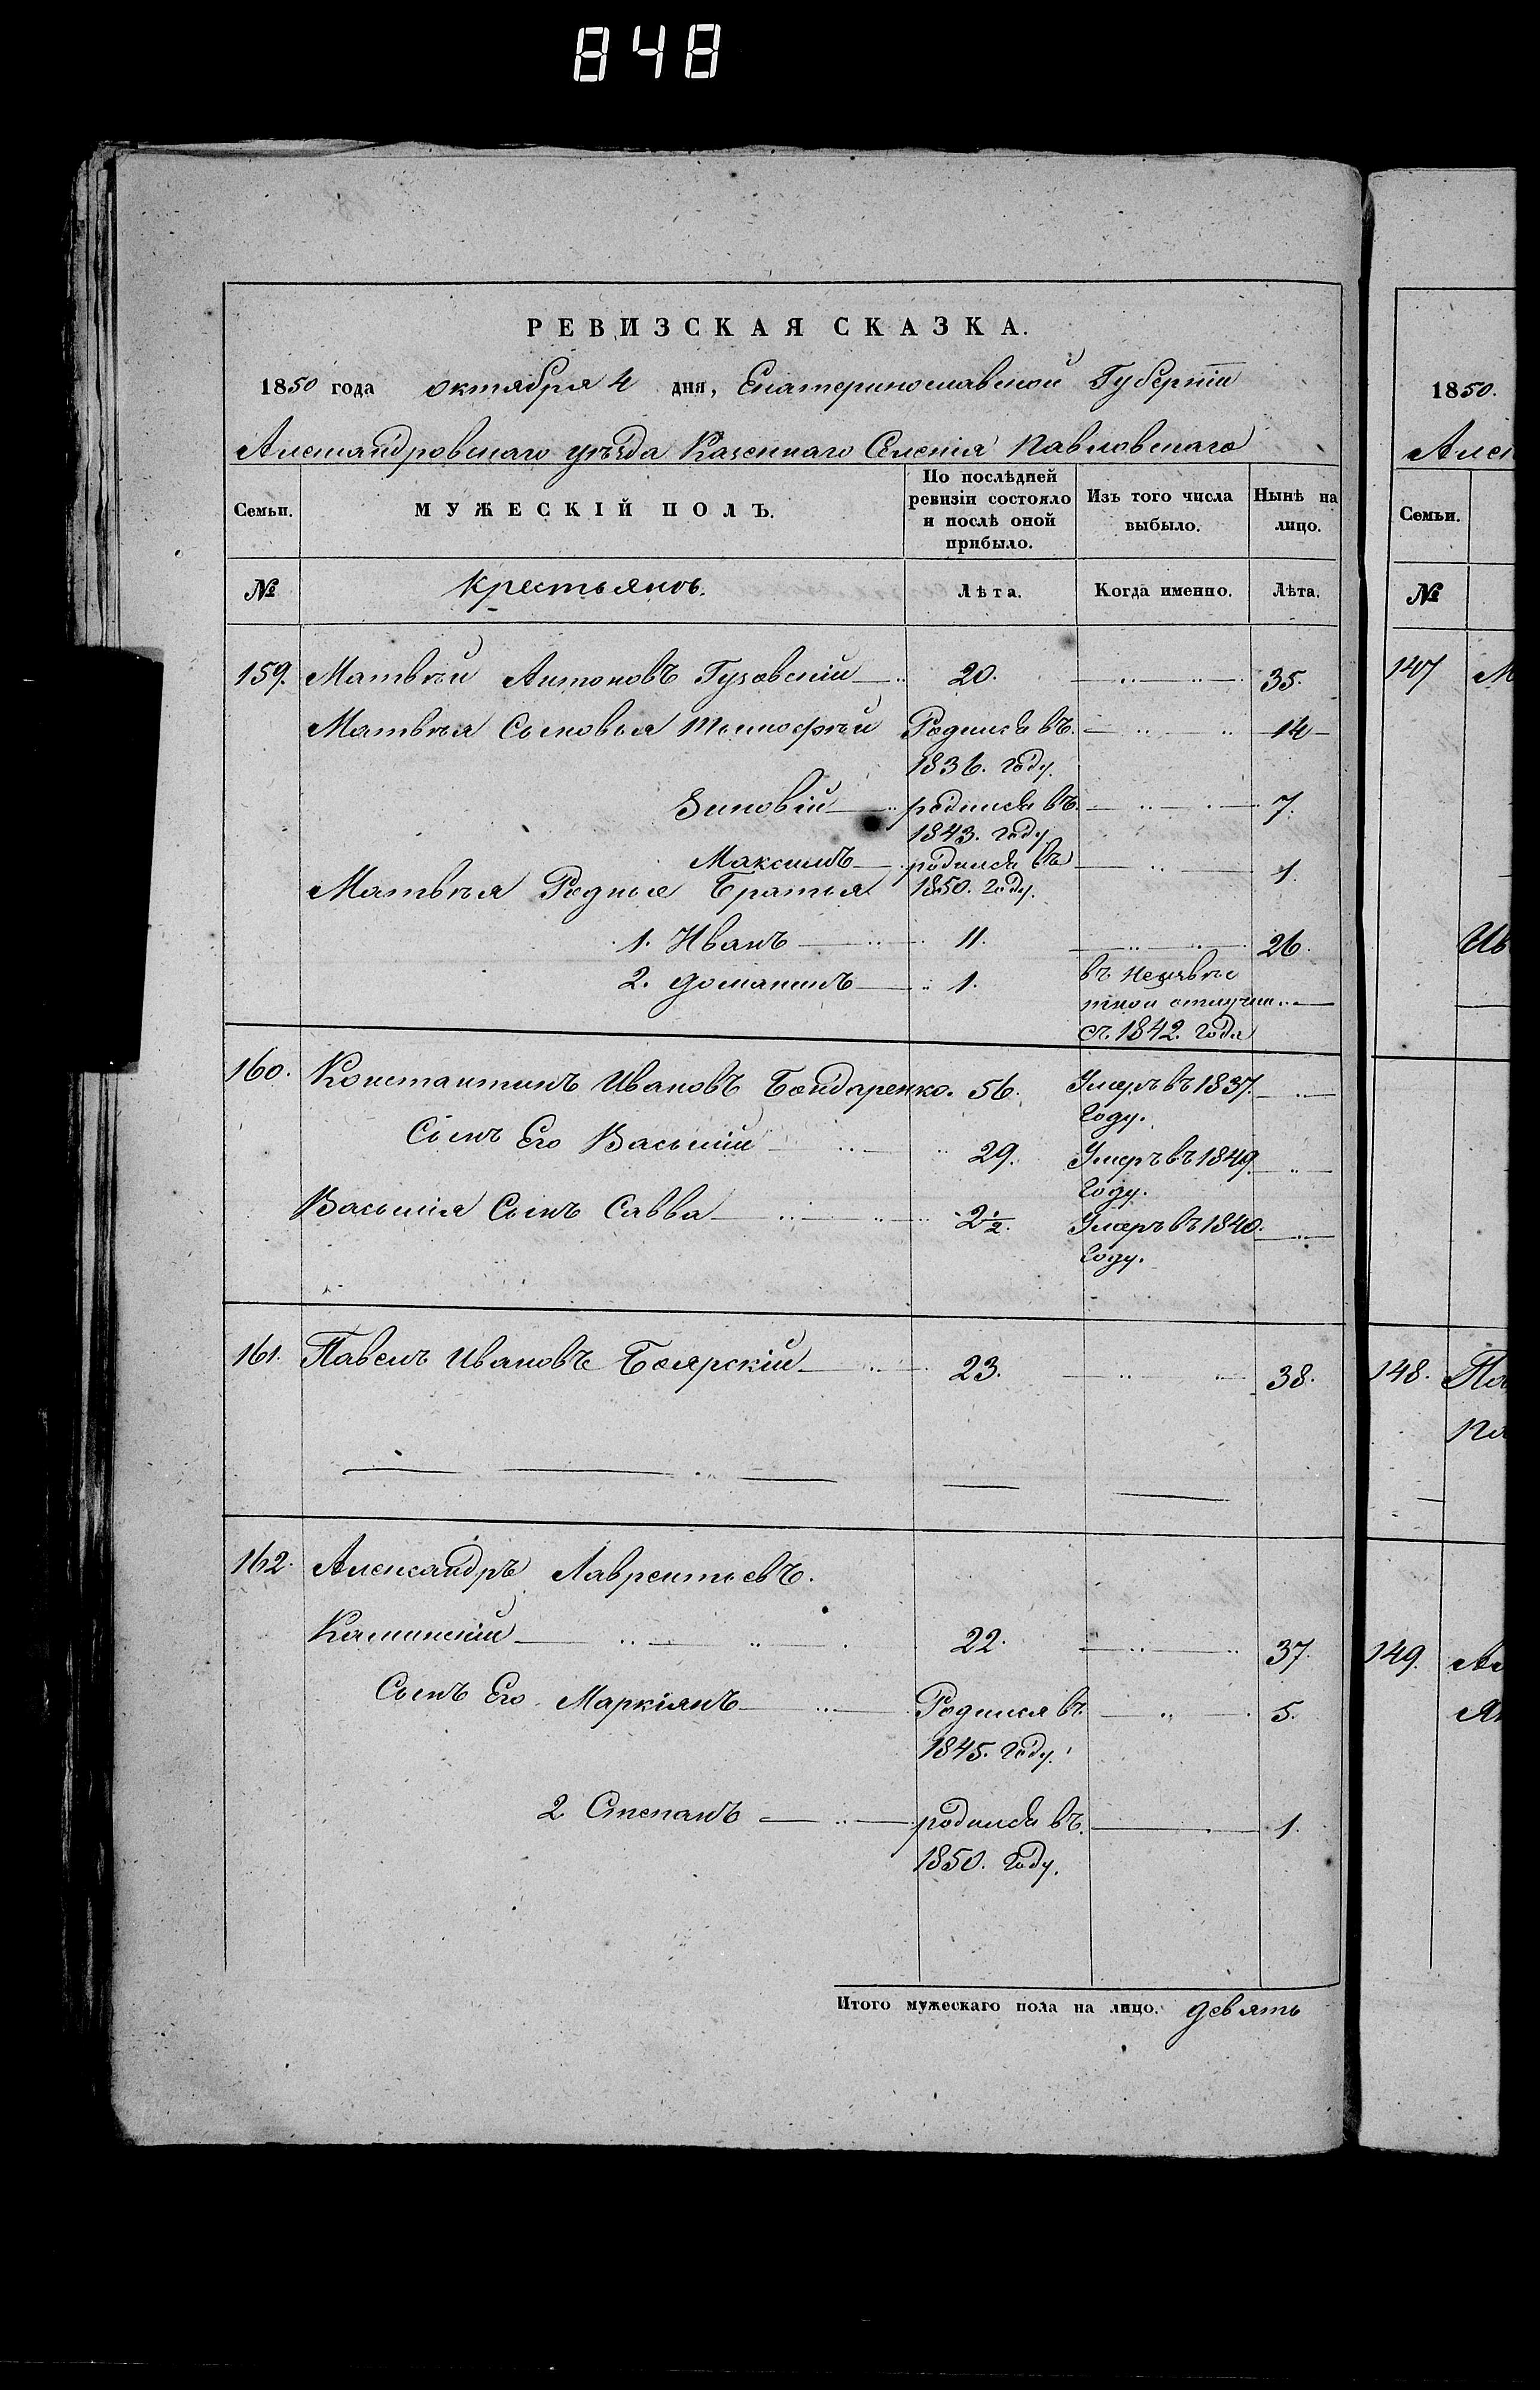 848
РЕВИЗСКАЯ СКАЗКА.
1850 года октября 4 дня, Екатеринославской Губерніи
Александровскаго уѣзда Казеннаго Селенія Павловскаго
Семьи. МУЖЕСКІЙ ПОЛЪ. По послѣдней ревизіи состояло и послѣ оной прибыло. Изъ того числа выбыло. Нынѣ на лицо.
№ Крестьянъ. Лѣта. Когда именно. Лѣта.
159. Матвѣй Антоновъ Гузовскій 20. 35.
Матвѣя Сыновья Тимофѣй Родился въ 14
1836. году.
Зиновій родился въ 7.
1843. году
Максимъ родился въ 1.
Матвѣя Родные Братья 1850. году.
1. Иванъ 11. 26.
2. Доманинъ 1. въ неизвѣс
тной отлучки
съ 1842. года
160. Константинъ Ивановъ Бондаренко. 56. Умеръ въ 1837.
году.
Сынъ Его Василій 29. Умеръ въ 1849
году.
Василія Сынъ Савва 2 1/2. Умеръ въ 1840.
году.
161. Павелъ Ивановъ Боярскій 23. 38.
162. Александръ Лаврентьевъ.
Калинскій 22. 37.
Сынъ Его Маркіянъ Родился въ 5.
1845. году.
2 Степанъ родился въ 1.
1850. году.
Итого мужескаго пола на лицо. девять
1850.
Алек
Семьи.
№
147 М
Ив
148. Па
Па
149. Ал
Як